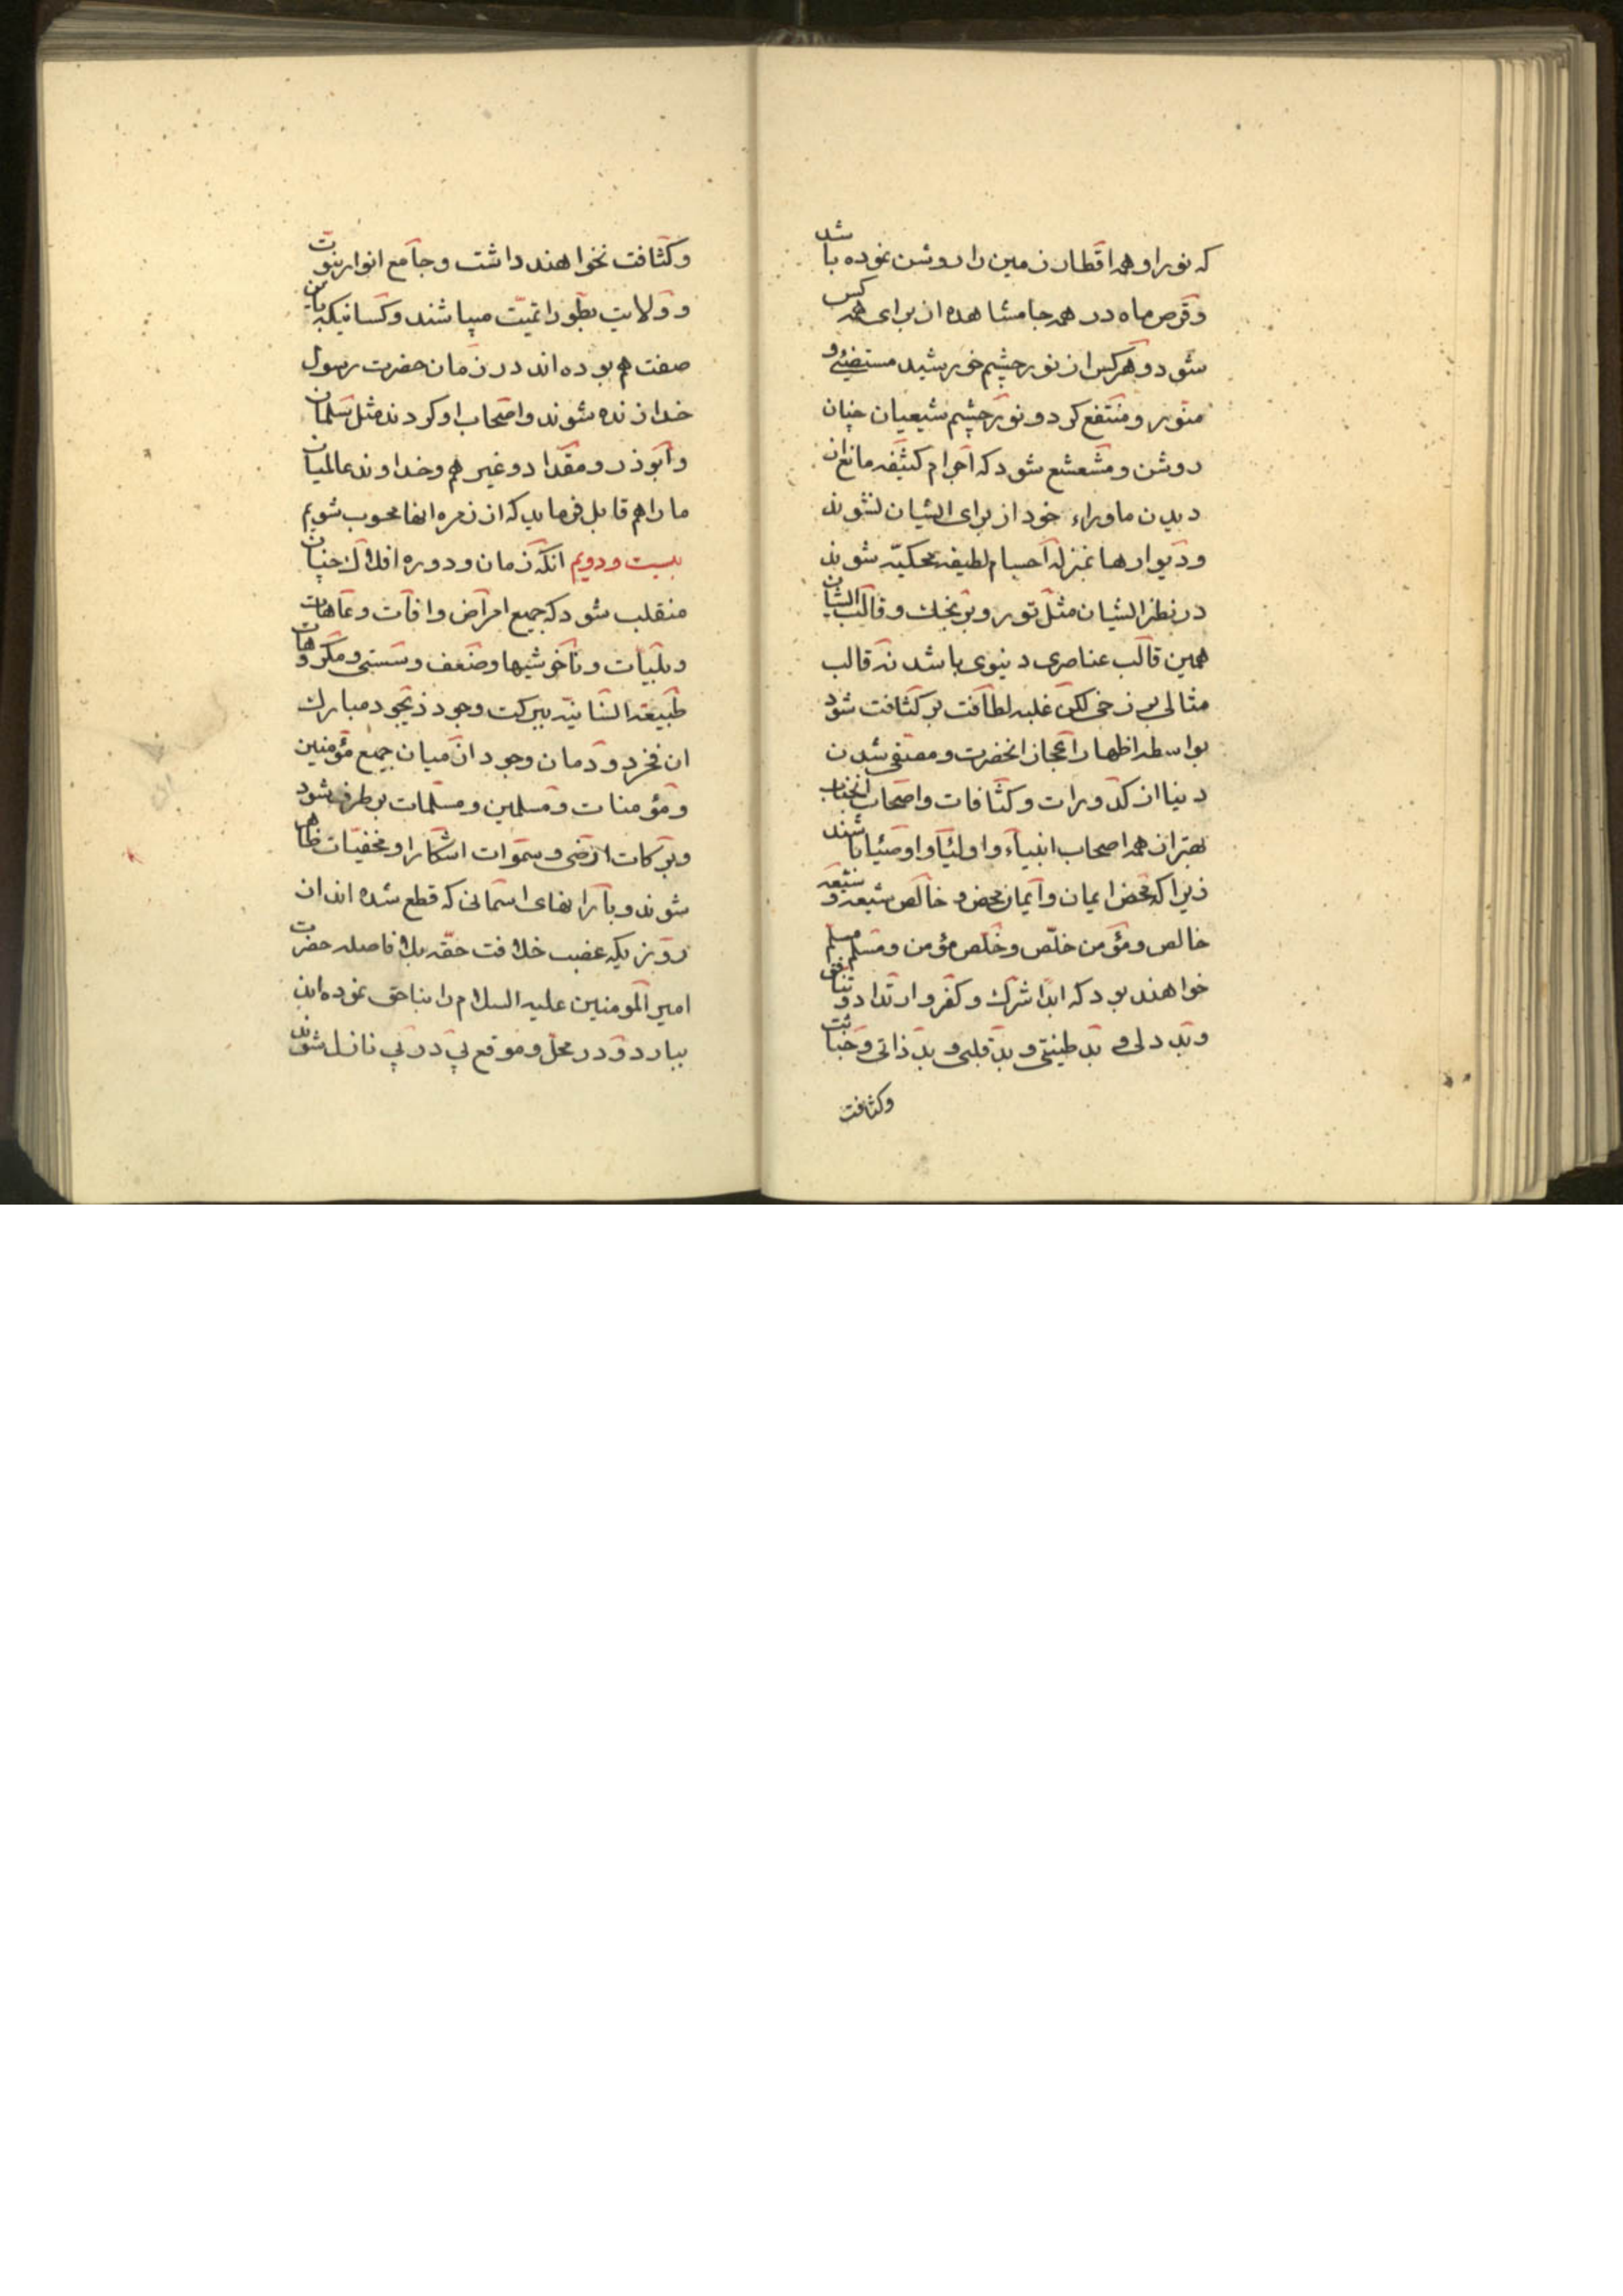 که نور او همه اقطار زمین را روشن نموده باشد
و قرص ماه در همه جا مشاهده از برای همه کس
شود و هرکس از نور چشم خورشید مستضیئ و
منور و منتفع کردد و نور چشم شیعیان چنان
روشن و مشعشع شود که اجرام کثیفه مانع از
دیدن ماوراء خود از برای ایشان نشوند
و دیوارها بمنزله اجسام لطیفه محکیّه شوند
در نظر ایشان مثل تور و و قالب ایشان
همین قالب عناصری دنیوی باشد نه قالب
مثالی برزخی لکن غلبه لطافت بر کثافت شود
بواسطه اظهار اعجاز انحضرت و مصفی شدن
دنیا از کدورات و کثافات و اصحاب انجناب
بهتر از همه اصحاب انبیآء و اولیا و اوصیا باشند
زیرا که محض ایمان و ایمان محض و خالص شیعه و شیعه
خالص و مؤمن خلّص و خلّص مؤمن و مسلم مسلم
خواهند بود که ابدا شرک و کفر و ارتداد و نفاق
و بد دلی و بد طینتی و بد قلبی و بد ذاتی و خباثت
و کثافت
و کثافت نخواهند داشت و جامع انوار نبوت
و ولایت بطور اتمیّت میباشند و کسانیکه باین
صفت هم بوده اند در زمان حضرت رسول
خدا زنده شوند و اصحاب او کردند مثل سلمان
و ابوذر و مقداد و غیرهم و خداوند عالمیان
ما را هم قابل فرماید که از زمره انها محسوب شویم
بیست و دویم انکه زمان و دوره افلاک چنان
منقلب شود که جمیع امراض و افات و عاهات
و بلیات و ناخوشیها و ضعف و سستی و مکروهات
طبیعة انسانیّه ببرکت وجود ذیجود مبارک
ان فخر دودمان وجود از میان جمیع مؤمنین
و مؤمنات و مسلمین و مسلمات بر طرف شود
و برکات ارضی و سموات اشکارا و مخفیات ظاهر
شوند و بارانهای اسمانی که قطع شده اند از
روزیکه غصب خلافت حقّه بلا فاصله حضرت
امیر المومنین علیه السلام را بناحق نموده اند
ببارد و در محل و موقع پی در پی نازل شوند